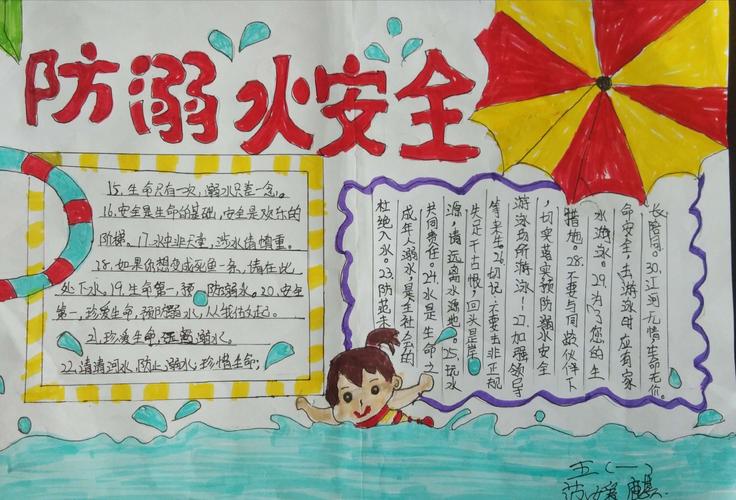 防溺水安全
15.生命只有一次,溺水只差一念。
16.安全是生命的基础,安全是欢乐的
阶梯。17.水中非天堂,涉水慎重。
18.如果你想变成死鱼一条,请在此
处下水。19.生命第一,预防溺水。20.安全
第一,珍爱生命,预防溺水,从我做起。
21.珍爱生命,远离溺水。
22.清清河水,防止溺水;珍惜生命;
杜绝入水。23.防范未
成年人溺水,是全社会的
共同责任。24.水是生命之
源,请远离水源地。25.玩水
失足千古恨,回头是岸
等来生26.切记:不要去非正规
游泳场所游泳!27.加强领导
,切实落实预防溺水安全
措施。28.不要与同龄伙伴下
水游泳。29.为了您的生
命安全,去游泳时应有家
长陪同。30.江河无情生命无价。
五(一)